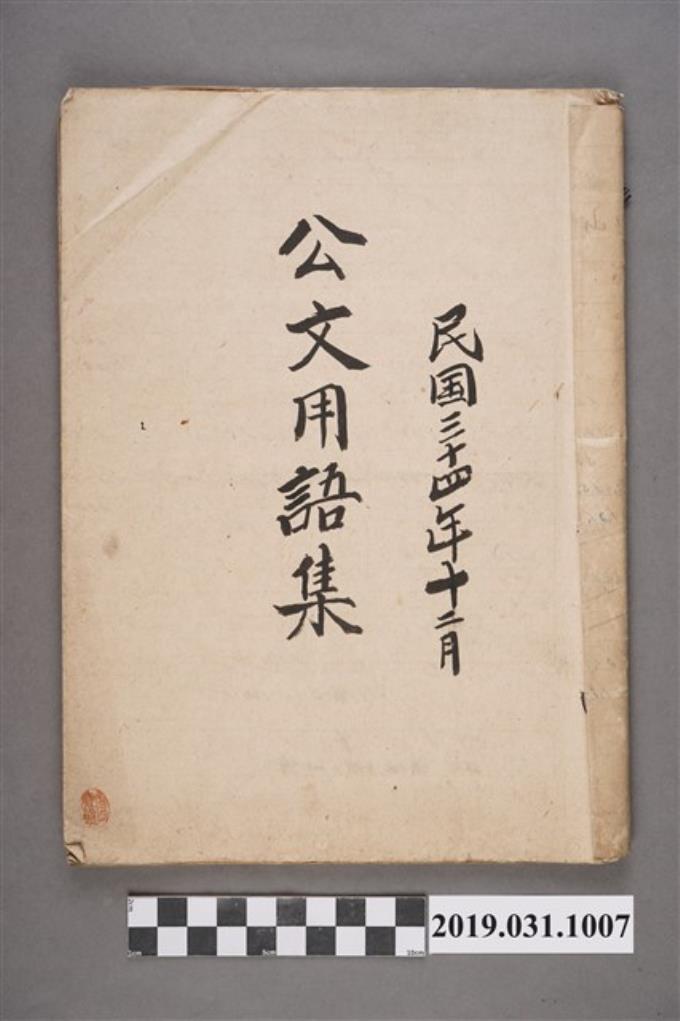 民国三十四年十二月
公文用語集
2019.031.1007